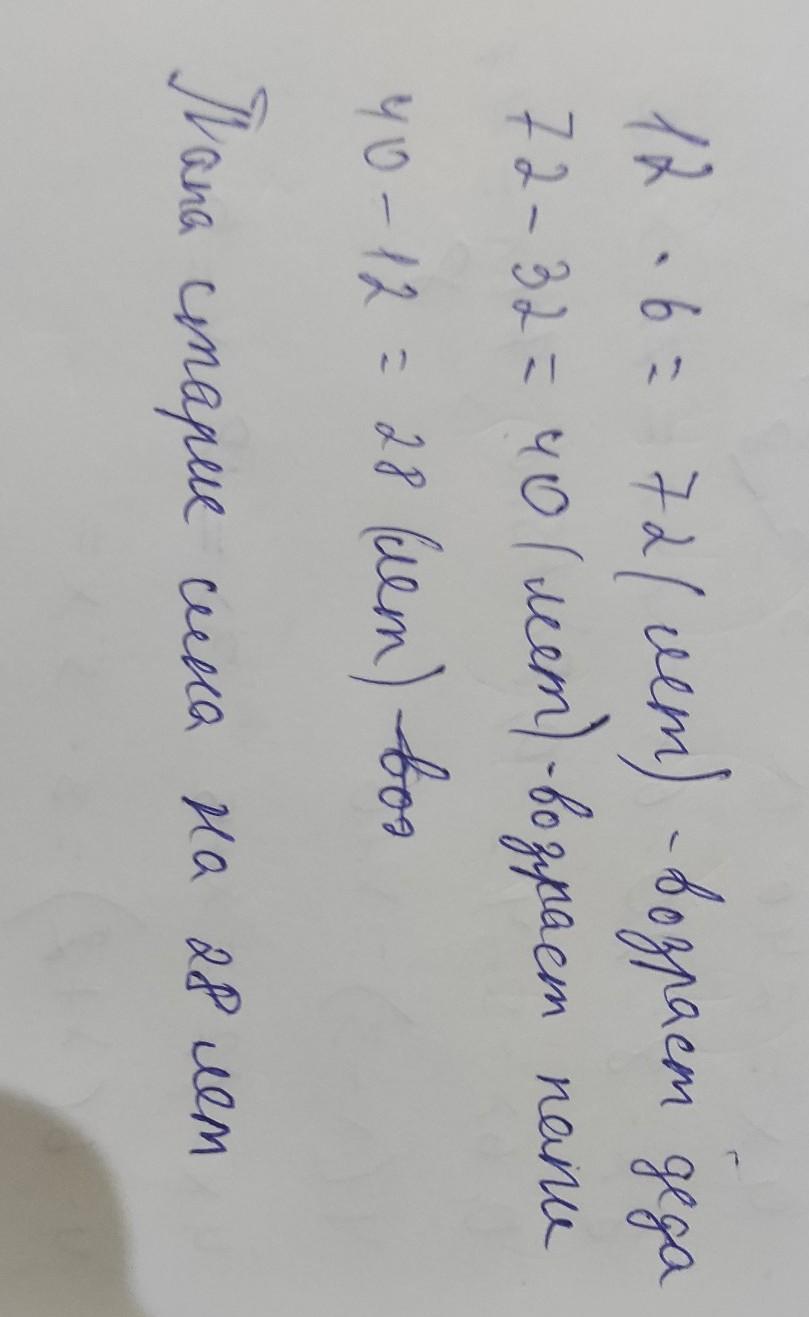 12 · 6 = 72 (лет) - возраст деда
72 - 32 = 40 (лет) - возраст папы
40 - 12 = 28 (лет) - воз
Папа старше сына на 28 лет